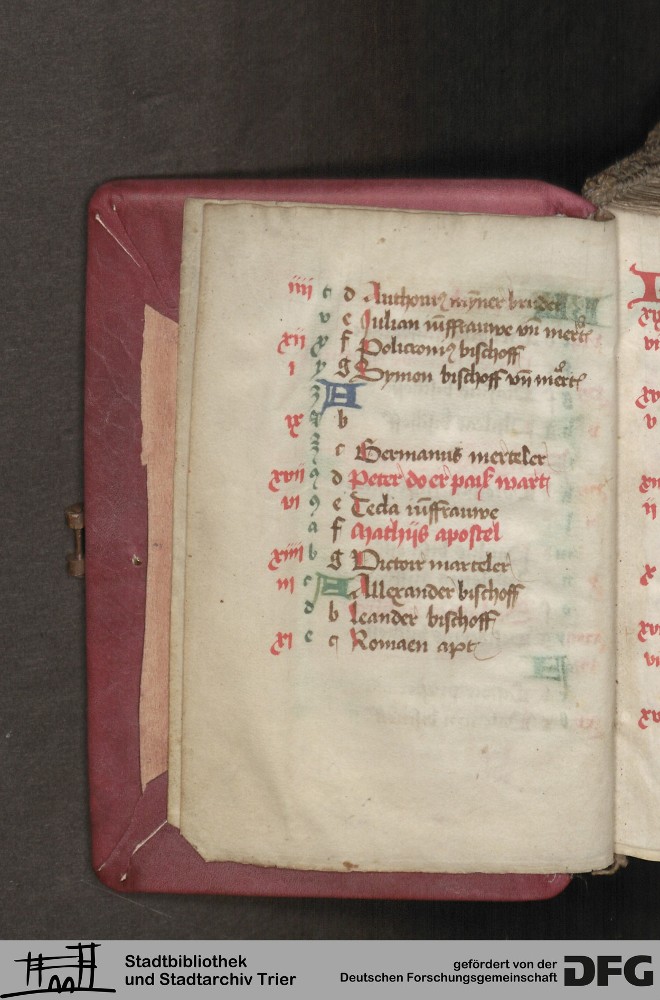 iiii t d Anthoniꝰ myner bruder
v e Julian iũffrauwe vñ mert
xii x f Policroniꝰ bischoff
i y g Symon bischoff vñ mert
z A
ix b
c Germanus merteler
xvii 9 d Peter do er paiſ wart
vi e Tecla iũffrauwe
a f Mathijs apostel
xiiii b g Victoir marteler
iii c A Allexander bischoff
d b Leander bischoff
xi e c Romaen apt
Stadtbibliothek
und Stadtarchiv Trier
gefördert von der
Deutschen Forschungsgemeinschaft
DFG